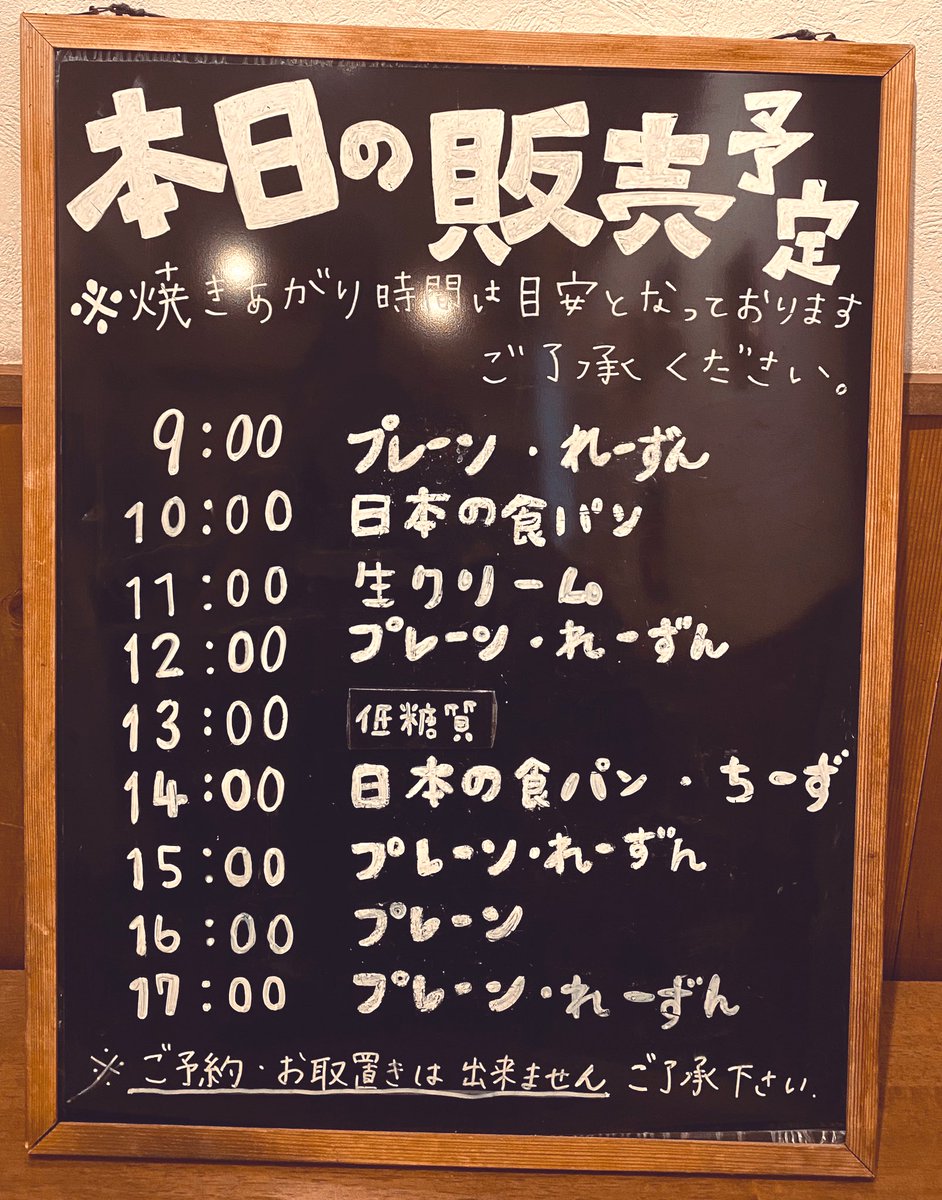 本日の販売予定
※焼きあがり時間は目安となっております
ご了承ください。
9:00 プレーン・れーずん
10:00 日本の食パン
11:00 生クリーム
12:00 プレーン・れーずん
13:00 低糖質
14:00 日本の食パン・ちーず
15:00 プレーン・れーずん
16:00 プレーン
17:00 プレーン・れーずん
※ご予約・お取置きは出来ませんご了承下さい.